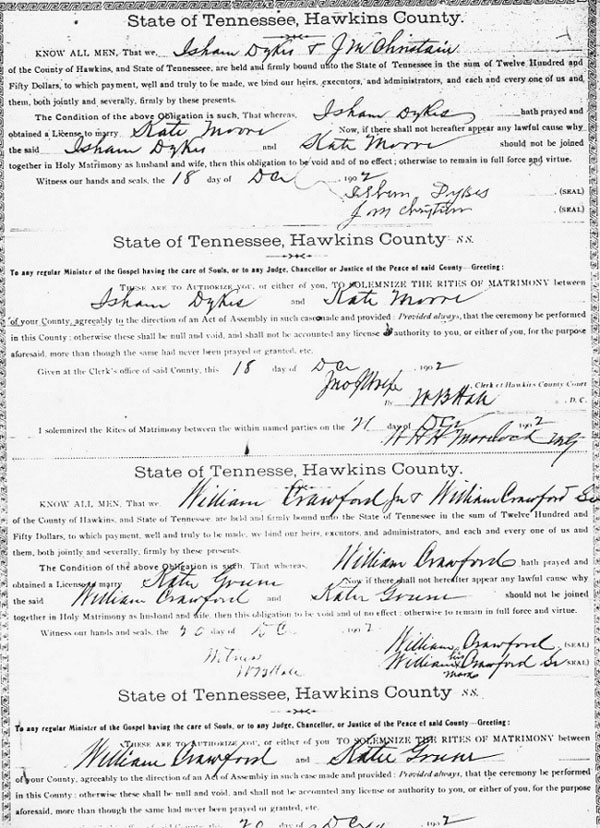 State of Tennessee, Hawkins County.
KNOW ALL MEN, That we, Isham Dykes & J M Christain
of the County of Hawkins, and State of Tennesseee, are held and firmly bound unto the State of Tennessee in the sum of Twelve Hundred and
Fifty Dollars, to which payment, well and truly to be made, we bind our heirs, executors, and administrators, and each and every one of us and
them, both jointly and severally, firmly by these presents.
The Condition of the above Obligation is such, That whereas, Isham Dykes hath prayed and
obtained a License to marry Kate Moore Now, if there shall not hereafter appear any lawful cause why
the said Isham Dykes and Kate Moore should not be joined
together in Holy Matrimony as husband and wife, then this obligation to be void and of no effect; otherwise to remain in full force and virtue.
Witness our hands and seals, the 18 day of Dec 1902
Isham Dykes (SEAL)
J M Christian (SEAL)
State of Tennessee, Hawkins County ss.
To any regular Minister of the Gospel having the care of Souls, or to any Judge, Chancellor or Justice of the Peace of said County—Greeting:
THESE ARE TO AUTHORIZE YOU, or either of you, TO SOLEMNIZE THE RITES OF MATRIMONY between
Isham Dykes and Kate Moore
of your County, agreeably to the direction of an Act of Assembly in such case made and provided: Provided always, that the ceremony be performed
in this County: otherwise these shall be null and void, and shall not be accounted any license or authority to you, or either of you, for the purpose
aforesaid, more than though the same had never been prayed or granted, etc.
Given at the Clerk's office of said County, this 18 day of Dec 1902
Clerk of Hawkins County Court
By W B Hale, D. C.
I solemnized the Rites of Matrimony between the within named parties on the 21 day of Dec 1902
W H H Murdock
State of Tennesse, Hawkins County.
KNOW ALL MEN, That we, William Crawford Jr & William Crawford Sr
of the County of Hawkins, and State of Tennessee, are held and firmly bound unto the State of Tennessee in the sum of Twelve Hundred and
Fifty Dollars, to which payment, well and truly to be made, we bind our heirs, excutors, and administrators, and each and every one of us and
them, both jointly and severally, firmly by these presents.
The Condition of the above Obligation is such, That whereas, William Crawford hath prayed and
obtained a License to marry Katie Now if there shall not hereafter appear any lawful cause why
the said William Crawford and Katie should not be joined
together in Holy Matrimony as husband and wife, then this obligation to be void and of no effect: otherwise to remain in full force and virtue.
Witness our hands and seals, the 20 day of Dec 1902
William Crawford (SEAL)
Witness William his mark Crawford Sr (SEAL)
W B Hale
State of Tennessee, Hawkins County ss.
To any regular Minister of the Gospel having the care of Souls, or to any Judge, Chancellor, or Justice of the Peace of said County—Greeting:
THESE ARE TO AUTHORIZE YOU, or either of you TO SOLEMNIZE THE RITES OF MATRIMONY between
William Crawford and Katie
of your County, agreeably to the direction of an Act of Assembly in such case made and provided: Provided always, that the ceremony be performed
in this County: otherwise these shall be null and void, and shall not be accounted any license or authority to you, or either of you, for the purpose
aforesaid, more than though the same had never been prayed or granted, etc.
20 Dec 1902